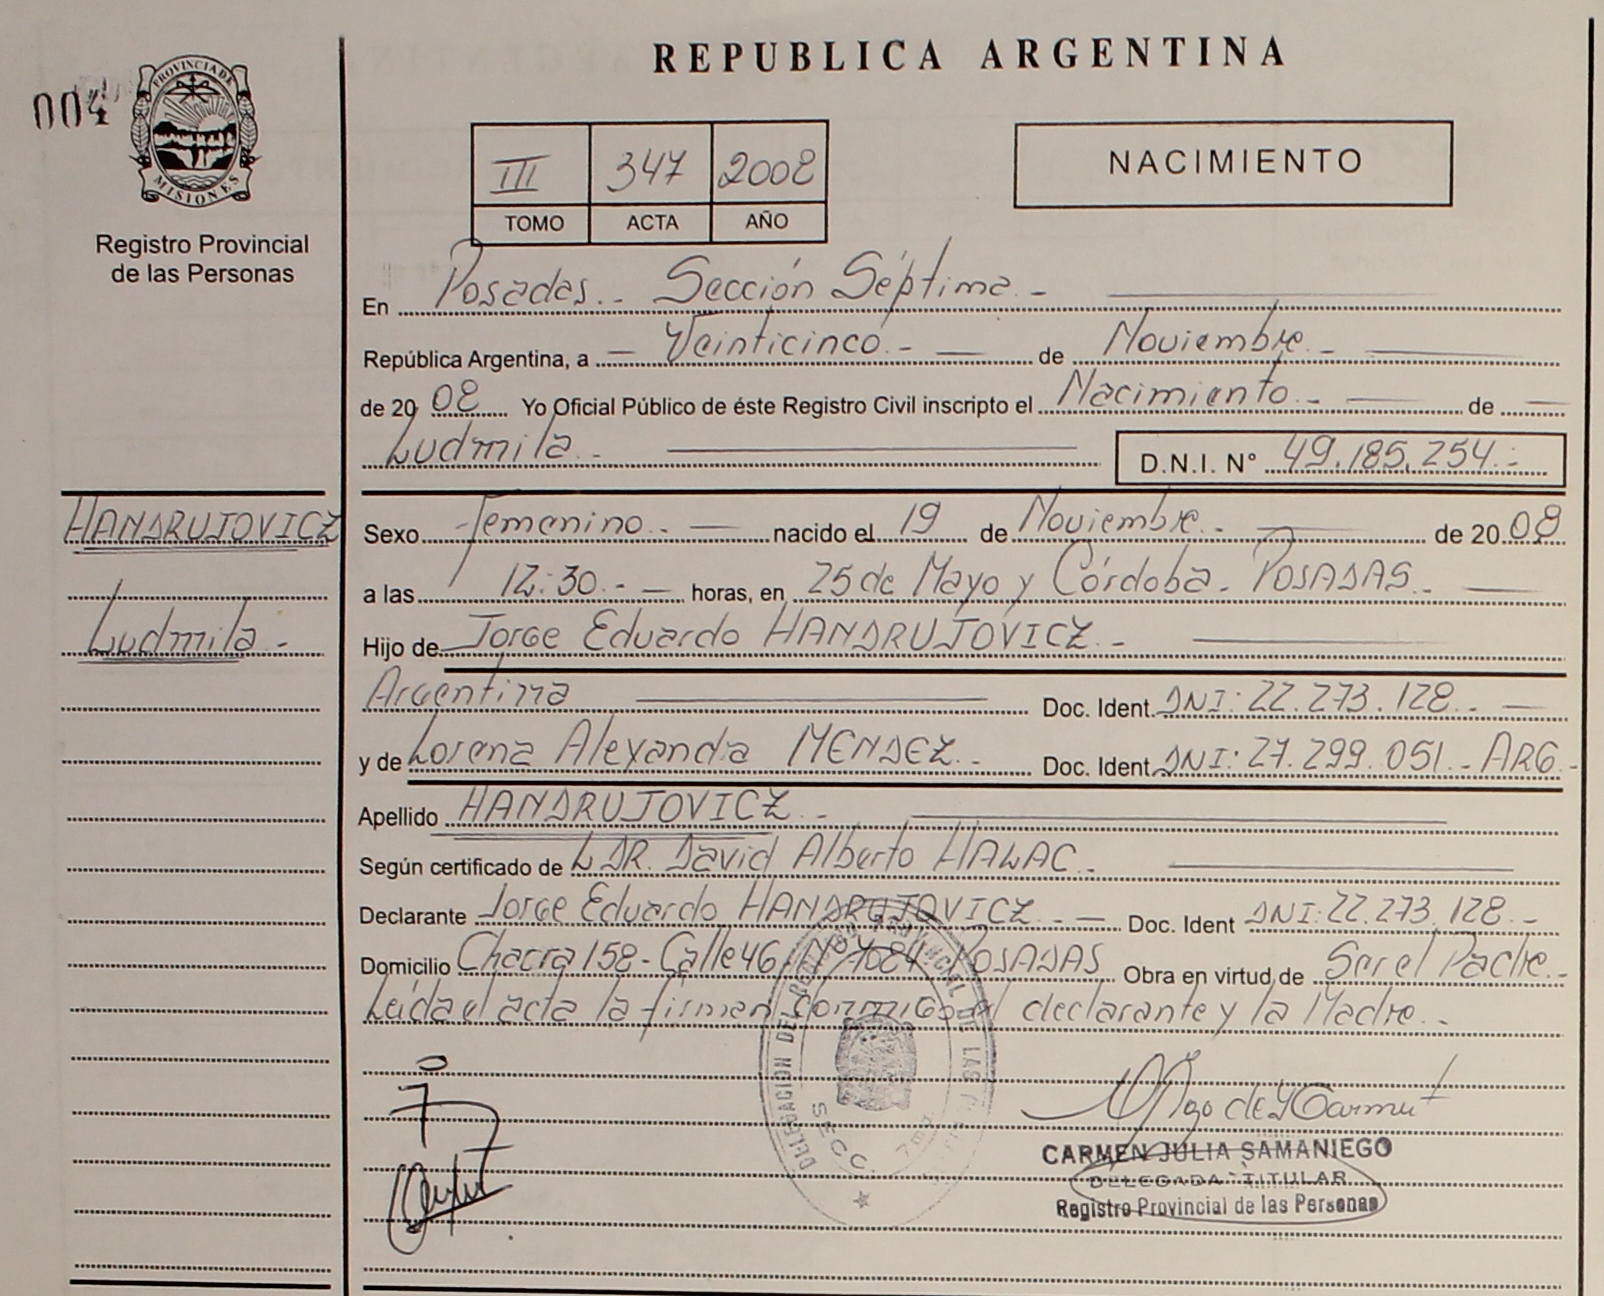 REPUBLICA ARGENTINA
004
PROVINCIA DE
MISIONES
Registro Provincial
de las Personas
III 347 2008
TOMO ACTA AÑO
NACIMIENTO
En Posadas.- Sección Séptima.-
República Argentina, a - Veinticinco.- de Noviembre.-
de 2008 Yo Oficial Público de éste Registro Civil inscripto el Nacimiento.- de
Ludmila.- D.N.I. Nº 49.185.254.-
HANDRUJOVICZ
Ludmila.-
Sexo Femenino.- nacido el 19 de Noviembre.- de 2008
a las 12:30.- horas, en 25 de Mayo y Córdoba. POSADAS.-
Hijo de Jorge Eduardo HANDRUJOVICZ.-
Argentina Doc. Ident. DNI: 22.273.128.-
y de Lorena Alexandra MENDEZ.- Doc. Ident DNI: 27.299.051.- ARG.-
Apellido HANDRUJOVICZ.-
Según certificado de L DR. David Alberto HALAC.-
Declarante Jorge Eduardo HANDRUJOVICZ.- Doc. Ident DNI: 22.273.128.-
Domicilio Chacra 158- Calle 46 Nº 7084 POSADAS Obra en virtud de Ser el Padre.-
Leida el acta la firman conmigo el declarante y la Madre.-
DELEGACION DEL REGISTRO PROVINCIAL DE LAS
SECC. 7ma
CARMEN JULIA SAMANIEGO
DELEGADA TITULAR
Registro Provincial de las Personas